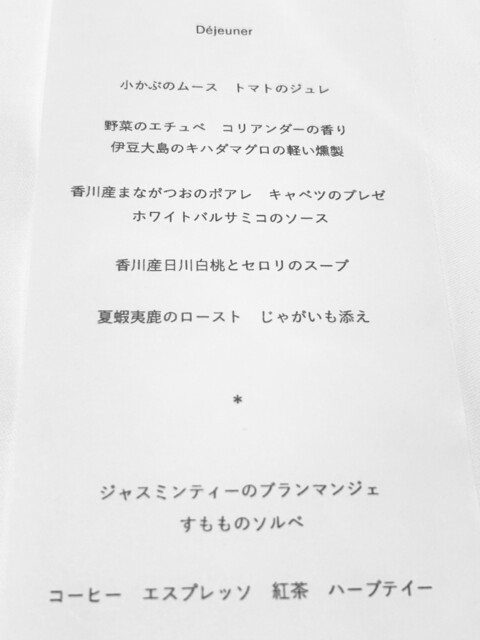 Déjeuner
小かぶのムース　トマトのジュレ
野菜のエチュベ　コリアンダーの香り
伊豆大島のキハダマグロの軽い燻製
香川産まながつおのポアレ　キャベツのブレゼ
ホワイトバルサミコのソース
香川産日川白桃とセロリのスープ
夏蝦夷鹿のロースト　じゃがいも添え
*
ジャスミンティーのブランマンジェ
すもものソルベ
コーヒー　エスプレッソ　紅茶　ハーブテイー